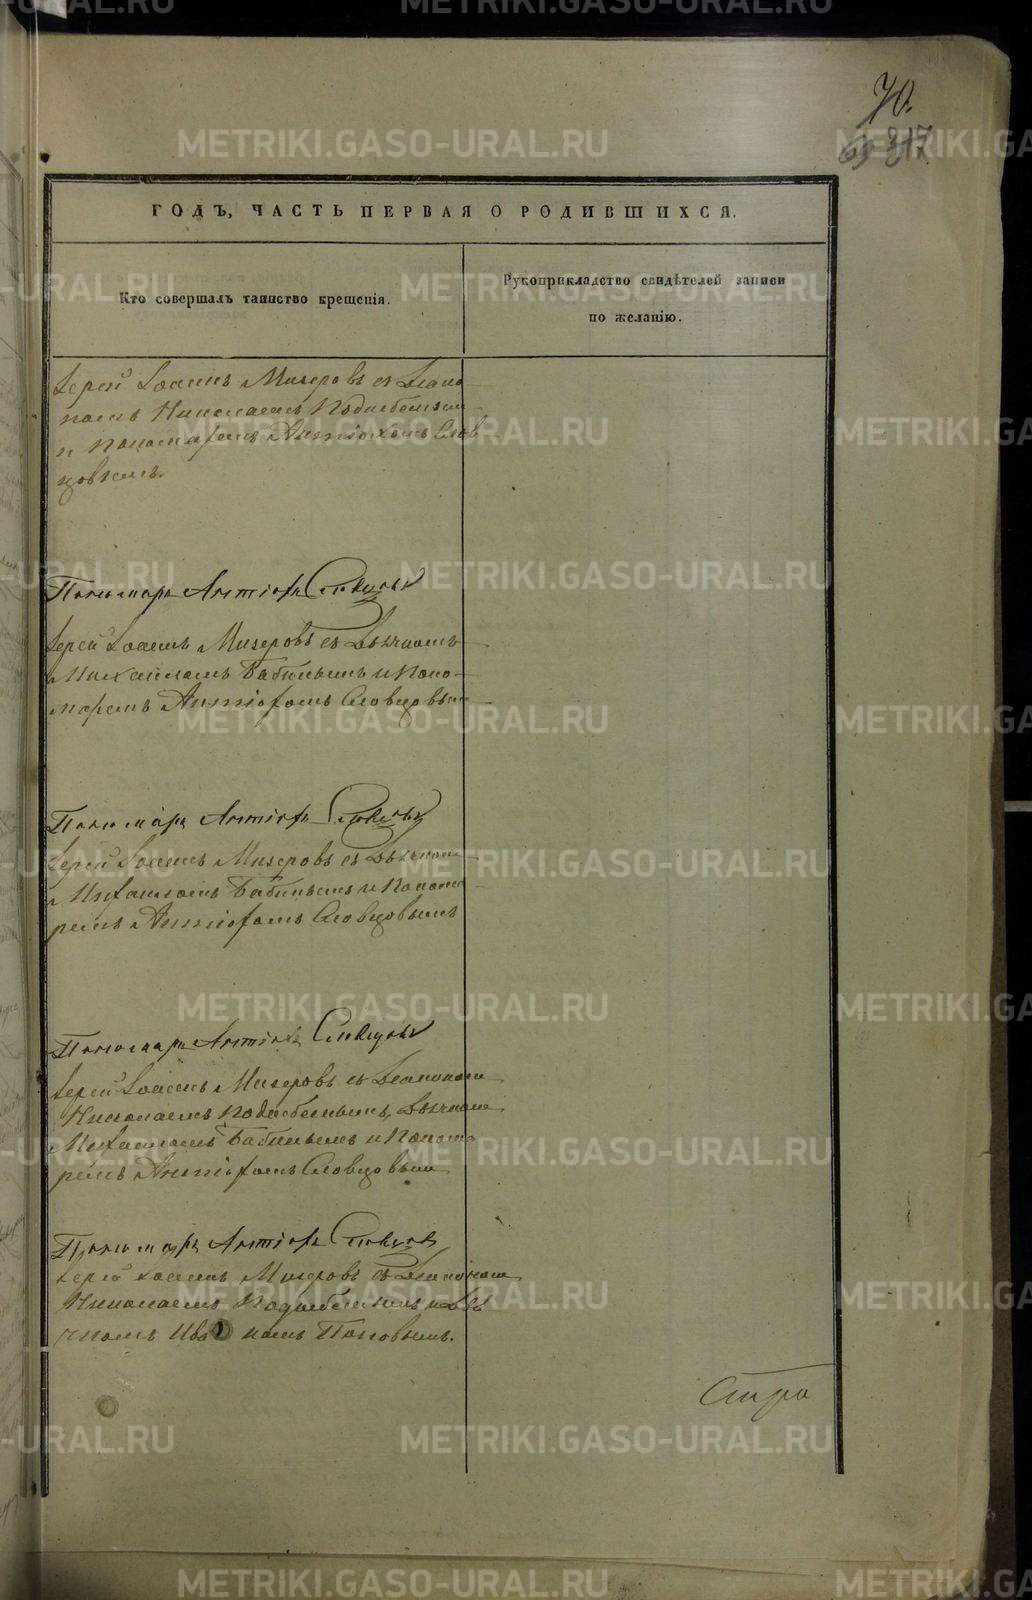 70.
317
ГОДЪ, ЧАСТЬ ПЕРВАЯ О РОДИВШИХСЯ.
Кто совершалъ таинство крещенія.
Рукоприкладство свидѣтелей записи
по желанію.
Іерей Іоаннъ Мизеровъ съ Діако
номъ Николаемъ
и Пономаремъ Антіохомъ Слов
цовымъ.
Пономарь Антіохъ Словцовъ
Іерей Іоаннъ Мизеровъ съ Дьячкомъ
Михаиломъ Бабинымъ и Поно-
маремъ Антіохомъ Словцовымъ
Пономарь Антіохъ Словцовъ
Іерей Іоаннъ Мизеровъ съ Дьячком
Михаиломъ Бабинымъ и Понома
ремъ Антіохомъ Словцовымъ
Пономарь Антіохъ Словцовъ
Іерей Іоаннъ Мизеровъ съ Діакономъ
Николаемъ Дьячкомъ
Михаиломъ Бабинымъ и Понома
ремъ Антіохомъ Словцовымъ
Пономарь Антіохъ Словцовъ
Іерей Іоаннъ Мизеровъ съ Діакономъ
Николаемъ и Дья
чкомъ Иваномъ Поповымъ.
METRIKI.GASO-URAL.RU